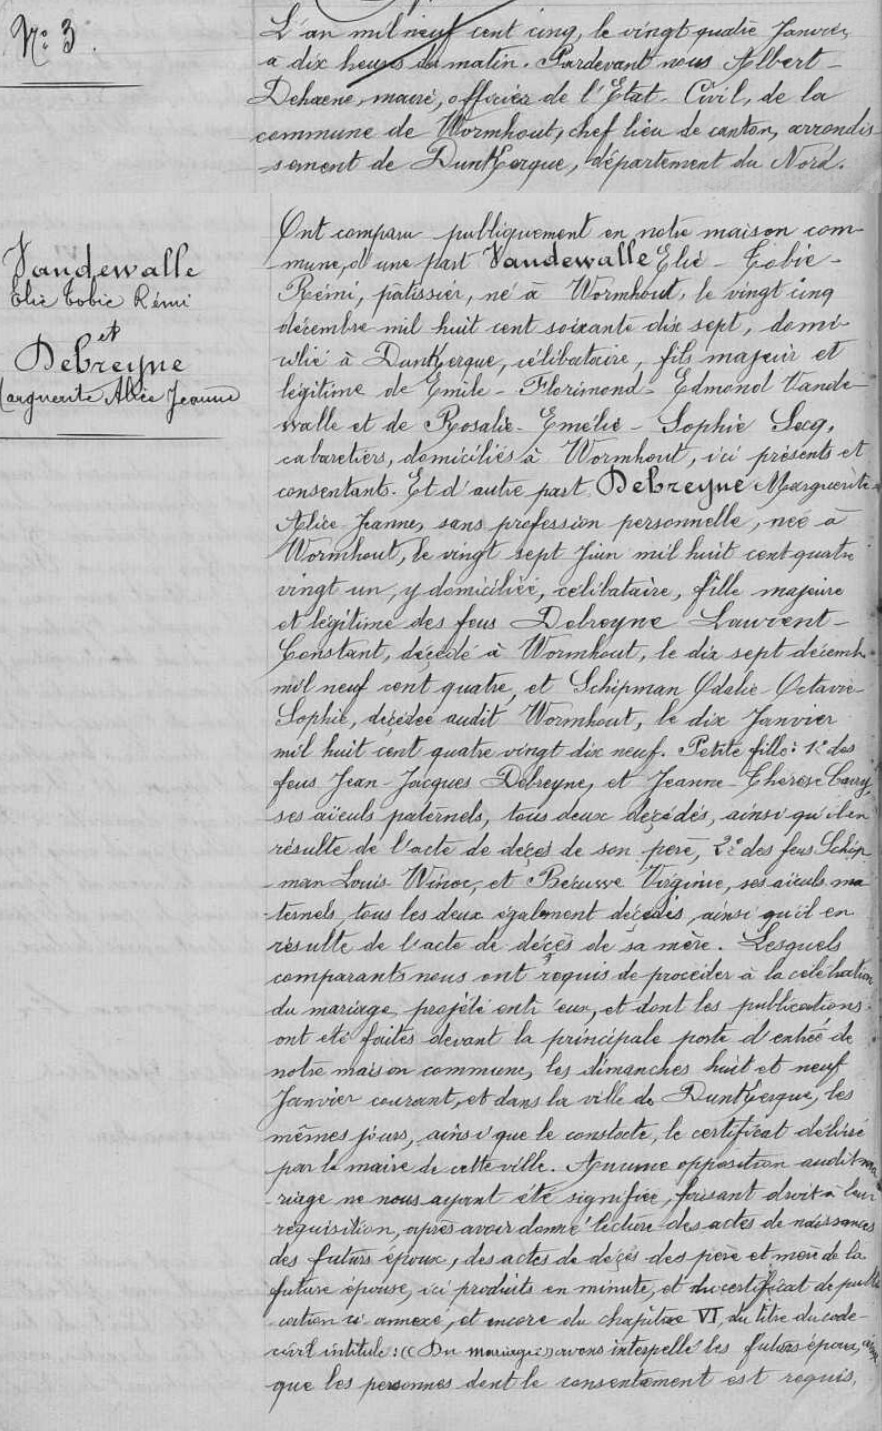 N° 3.
L'an mil neuf cent cinq, le vingt quatre Janvier,
à dix heures du matin. Pardevant nous Albert-
Dehaene, maire, officier de l'Etat-Civil, de la
commune de Wormhout, chef lieu de canton, arrondis-
-sement de Dunkerque, département du Nord.
Vandewalle
Elie Tobie Rémi
et
Debreyne
Marguerite Alice Jeanne
Ont comparu publiquement en notre maison com-
-mune, d'une part Vandewalle Elie - Tobie -
Rémi, pâtissier, né à Wormhout, le vingt cinq
décembre mil huit cent soixante dix sept, domi-
cilié à Dunkerque, célibataire, fils majeur et
légitime de Emile - Florimond - Edmond Vande-
walle et de Rosalie - Emélie - Sophie Secq,
cabaretiers, domiciliés à Wormhout, ici présents et
consentant. Et d'autre part Debreyne Marguerite-
Alice Jeanne, sans profession personnelle, née à
Wormhout, le vingt sept Juin mil huit cent quatre
vingt un, y domiciliée, célibataire, fille majeure
et légitime des feus Debreyne Laurent-
Constant, décédé à Wormhout, le dix sept décembre
mil neuf cent quatre, et Schipman Odelie-Octavie-
Sophie, décédée audit Wormhout, le dix Janvier
mil huit cent quatre vingt dix neuf. Petite fille: 1° des
feus Jean-Jacques Debreyne, et Jeanne-Thérèse
ses aïeuls paternels, tous deux décédés, ainsi qu'il en
résulte de l'acte de décès de son père, 2° des feus Schip-
-man Louis Winoc, et Virginie, ses aïeuls ma
-ternels, tous les deux également décédés, ainsi qu'il en
résulte de l'acte de décès de sa mère. Lesquels
comparants nous ont requis de procéder à la célébration
du mariage projeté entr'eux, et dont les publications
ont été faites devant la principale porte d'entrée de
notre maison commune, les dimanches huit et neuf
Janvier courant, et dans la ville de Dunkerque, les
mêmes jours, ainsi que le constate, le certificat délivré
par le maire de cette ville. Aucune opposition audit ma
-riage ne nous ayant été signifiée, faisant droit à leur
réquisition, après avoir donné lecture des actes de naissances
des futurs époux, des actes de décès des père et mère de la
future épouse, ici produits en minute, et du certificat de publi
cation ci annexé, et encore du chapitre VI, du titre du code-
civil intitulé: ((Du mariage)) avons interpellé les futurs époux, ainsi
que les personnes dont le consentement est requis,